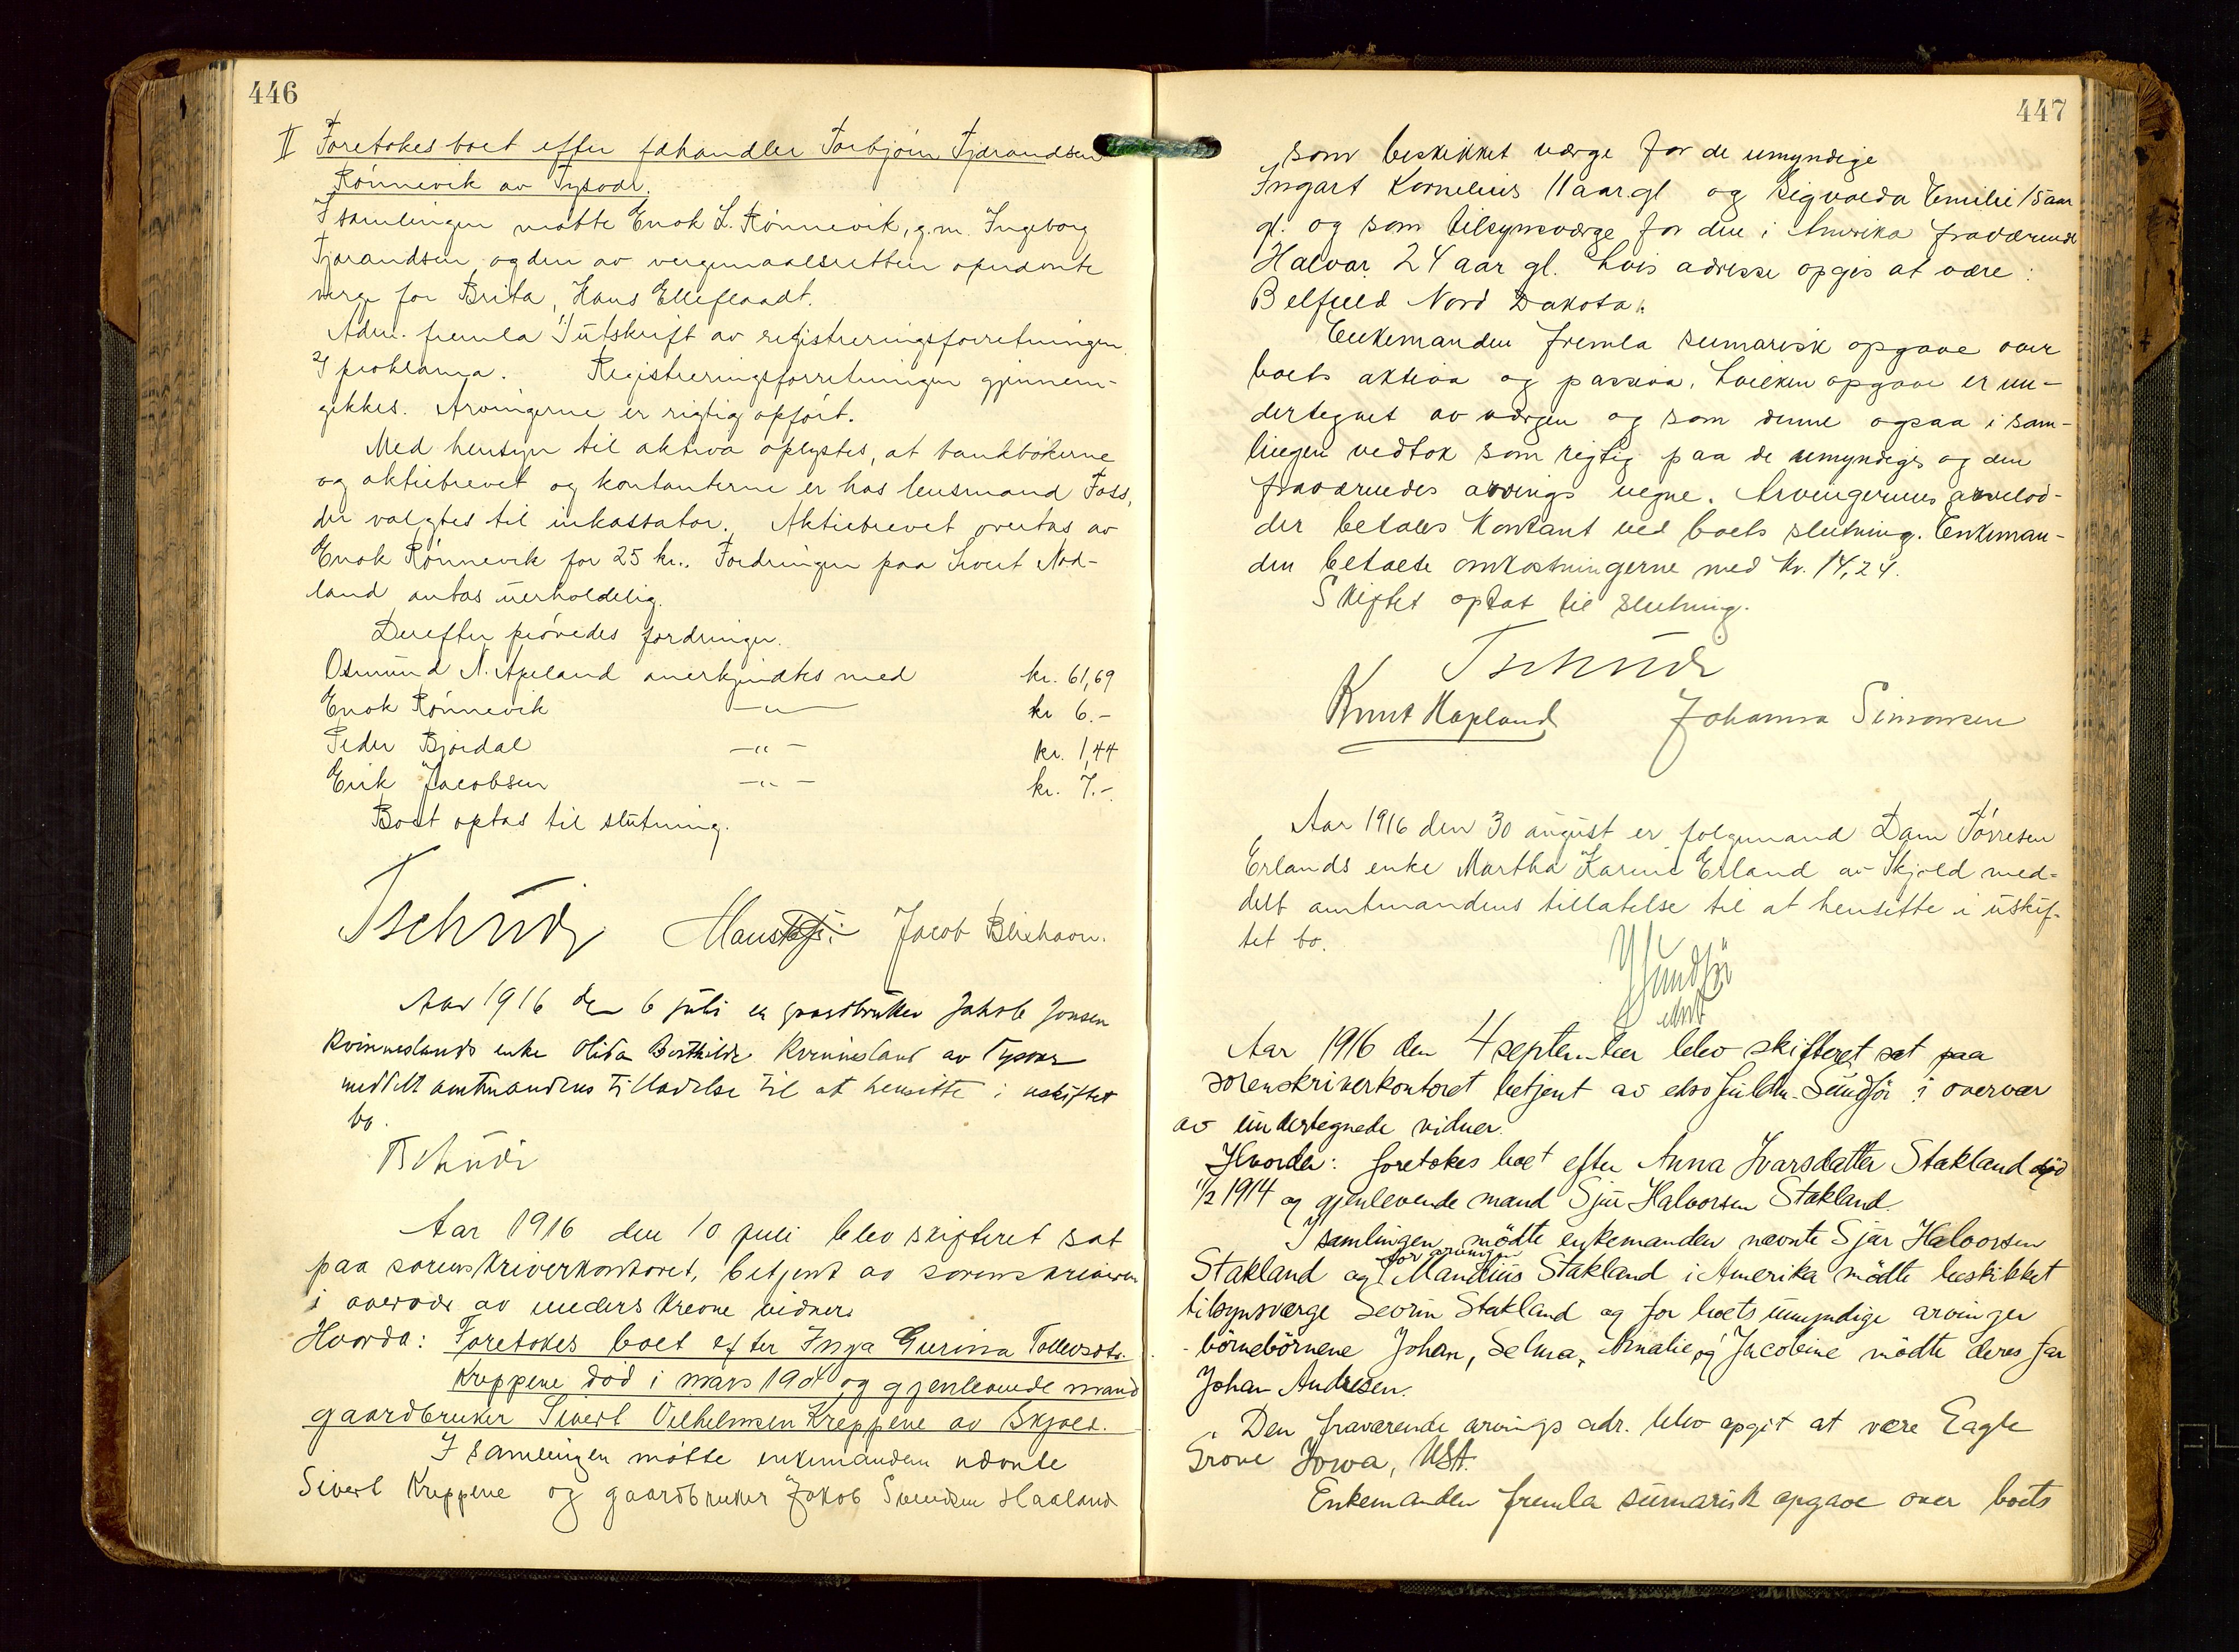 446
II Foretokes boet efter fehandler Torbjörn Tjerandsen
Rönnevik av Tysvær.
I samlingen møtte Enok L. Rönnevik, g.m. Ingeborg
Tjerandsen og den av vergemaalsretten opnævnte
verge for Brita, Hans Elleflaadt.
Adm. fremla 1) utskrift av registreringsforretningen
2) proklama. Registreringsforretningen gjennem-
gikkes. Arvingerne er rigtig opført.
Med hensyn til aktiva oplystes, at bankbökerne
og aktiebrevet og kontanterne er hos lensmand Foss,
der valgtes til inkassator. Aktiebrevet overtas av
Enok Rönnevik for 25 kr. Fordringen paa Sivert Nod-
land antas uerholdelig.
Derefter prövedes fordringer.
Osmund N. Apeland anerkjendtes med kr. 61,69
Enok Rönnevik —"— kr 6.-
Peder Bjordal —"— kr. 1,44
Erik Jacobsen —"— kr. 7.-
Boet optas til slutning.
Tschudi Jacob Blixhavn.
Aar 1916 den 6 juli er gaardbruker Jakob Jonsen
Kvinneslands enke Olida Berthilde Kvinnesland av Tysvær
meddelt amtmandens tilladelse til at hensitte i uskiftet
bo.
Tschudi
Aar 1916 den 10 juli blev skifteret sat
paa sorenskriverkontoret, betjent av sorenskriveren
i overvær av underskrevne vidner.
Hvorda: Foretokes boet efter Inga Gurina Tollevsdtr.
Kreppene död i mars 190 og gjenlevende mand
gaardbruker Sivert Vilhelmsen Kreppene av Skjold.
I samlingen møtte enkemanden nævnte
Sivert Kreppene og gaardbruker Jakob Svendsen Haaland
447
som beskikket værge for de umyndige
Ingart Kornelius 11 aar gl og Sigvalda Emilie 15 aar
gl. og som tilsynsværge for den i Amerika fraværende
Halvar 24 aar gl. hvis adresse opgis at være:
Belfield Nord Dakota.
Enkemanden fremla sumarisk opgave over
boets aktiva og passiva, hvilken opgave er un-
dertegnet av værgen og som denne ogsaa i sam-
lingen vedtok som rigtig paa de umyndiges og den
fraværendes arvings vegne. Arvingernes arvelod-
der betales kontant ved boets slutning. Enkeman-
den betalte omkostningerne med kr. 14,24.
Skiftet optat til slutning.
Tschudi
Knut Hapland Johanna Simonsen
Aar 1916 den 30 august er folgemand Dam Törresen
Erlands enke Martha Karine Erland av Skjold med-
delt amtmandens tillatelse til at hensitte i uskif-
tet bo.
Sundför
Aar 1916 den 4 september blev skifteret sat paa
sorenskriverkontoret betjent av edsv. fuldm. Sundför i overvær
av undertegnede vidner.
Hvorda: foretokes boet efter Anna Ivarsdatter Stakland død
1/2 1914 og gjenlevende mand Sjur Halvorsen Stakland.
I samlingen mödte enkemanden nævnte Sjur Halvorsen
Stakland og for arvingen Mandius Stakland i Amerika mödte beskikket
tilsynsværge Sevrin Stakland og for boets umyndige arvinger
- börnebörnene Johan, Selma, Amalie og Jacobine mödte deres far
Johan Andresen.
Den fraværende arvings adr. blev opgit at være Eagle
Grove Jowa, USA.
Enkemanden fremla sumarisk opgave over boets